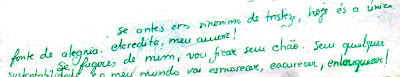 Se antes era sinonimo de tristeza, hoje és a única
fonte de alegria. Acredita, meu amor!
Se fugires de mim, vou ficar sem chão. Sem qualquer
sustentabilidade o meu mundo vai esmorecer, escurecer, enlouquecer!